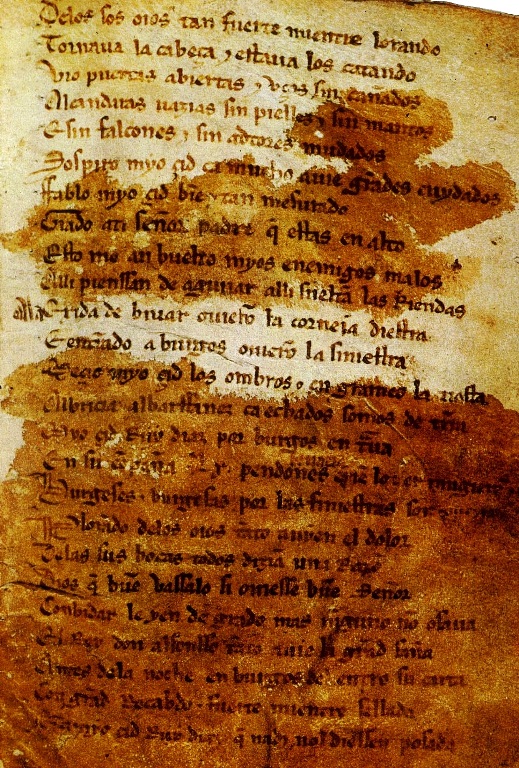 Delos sos oios tan fuerte mientre lorando
Tornaua la cabeça ⁊ estaua los catando
Vio puertas abiertas ⁊ vços sin cañados
Alcandaras uazias sin pielles ⁊ sin mantos
E sin falcones ⁊ sin adtores mudados
Sospiro myo çid ca mucho auie grãdes cuydados
Fablo myo çid bien ⁊ tan mesurado
Grado ati señor padre q̃ estas en alto
Esto me an buelto myos enemigos malos
Alli pienssan de aguijar alli sueltã las riendas
Exida de biuar ouierõ la corneia diestra
E entrãdo a burgos ouierõ la siniestra
Meçio myo çid los ombros ⁊ en grameo la tiesta
Albriçia albarffanez ca echados somos de tr̃ra
Myo çid Ruy diaz por burgos en traua
En su conpaña Lx pendones
Burgeses ⁊ burgesas por las finiestras son
Plorãdo delos oios tãto auyen el dolor
Delas sus bocas todos dizian una Razo
Dios q̃ buẽ vassalo si ouiesse buẽ Señor
Conbidar le yen de grado mas ninguno nõ osaua
El Rey don alfonsso tãto auie la grãd saña
Antes dela noche en burgos del entro su carta
Con grãd Recabdo ⁊ fuerte mientre sellada
Q̃ a myo çid Ruy diaz q̃ nadi nol diessen posada